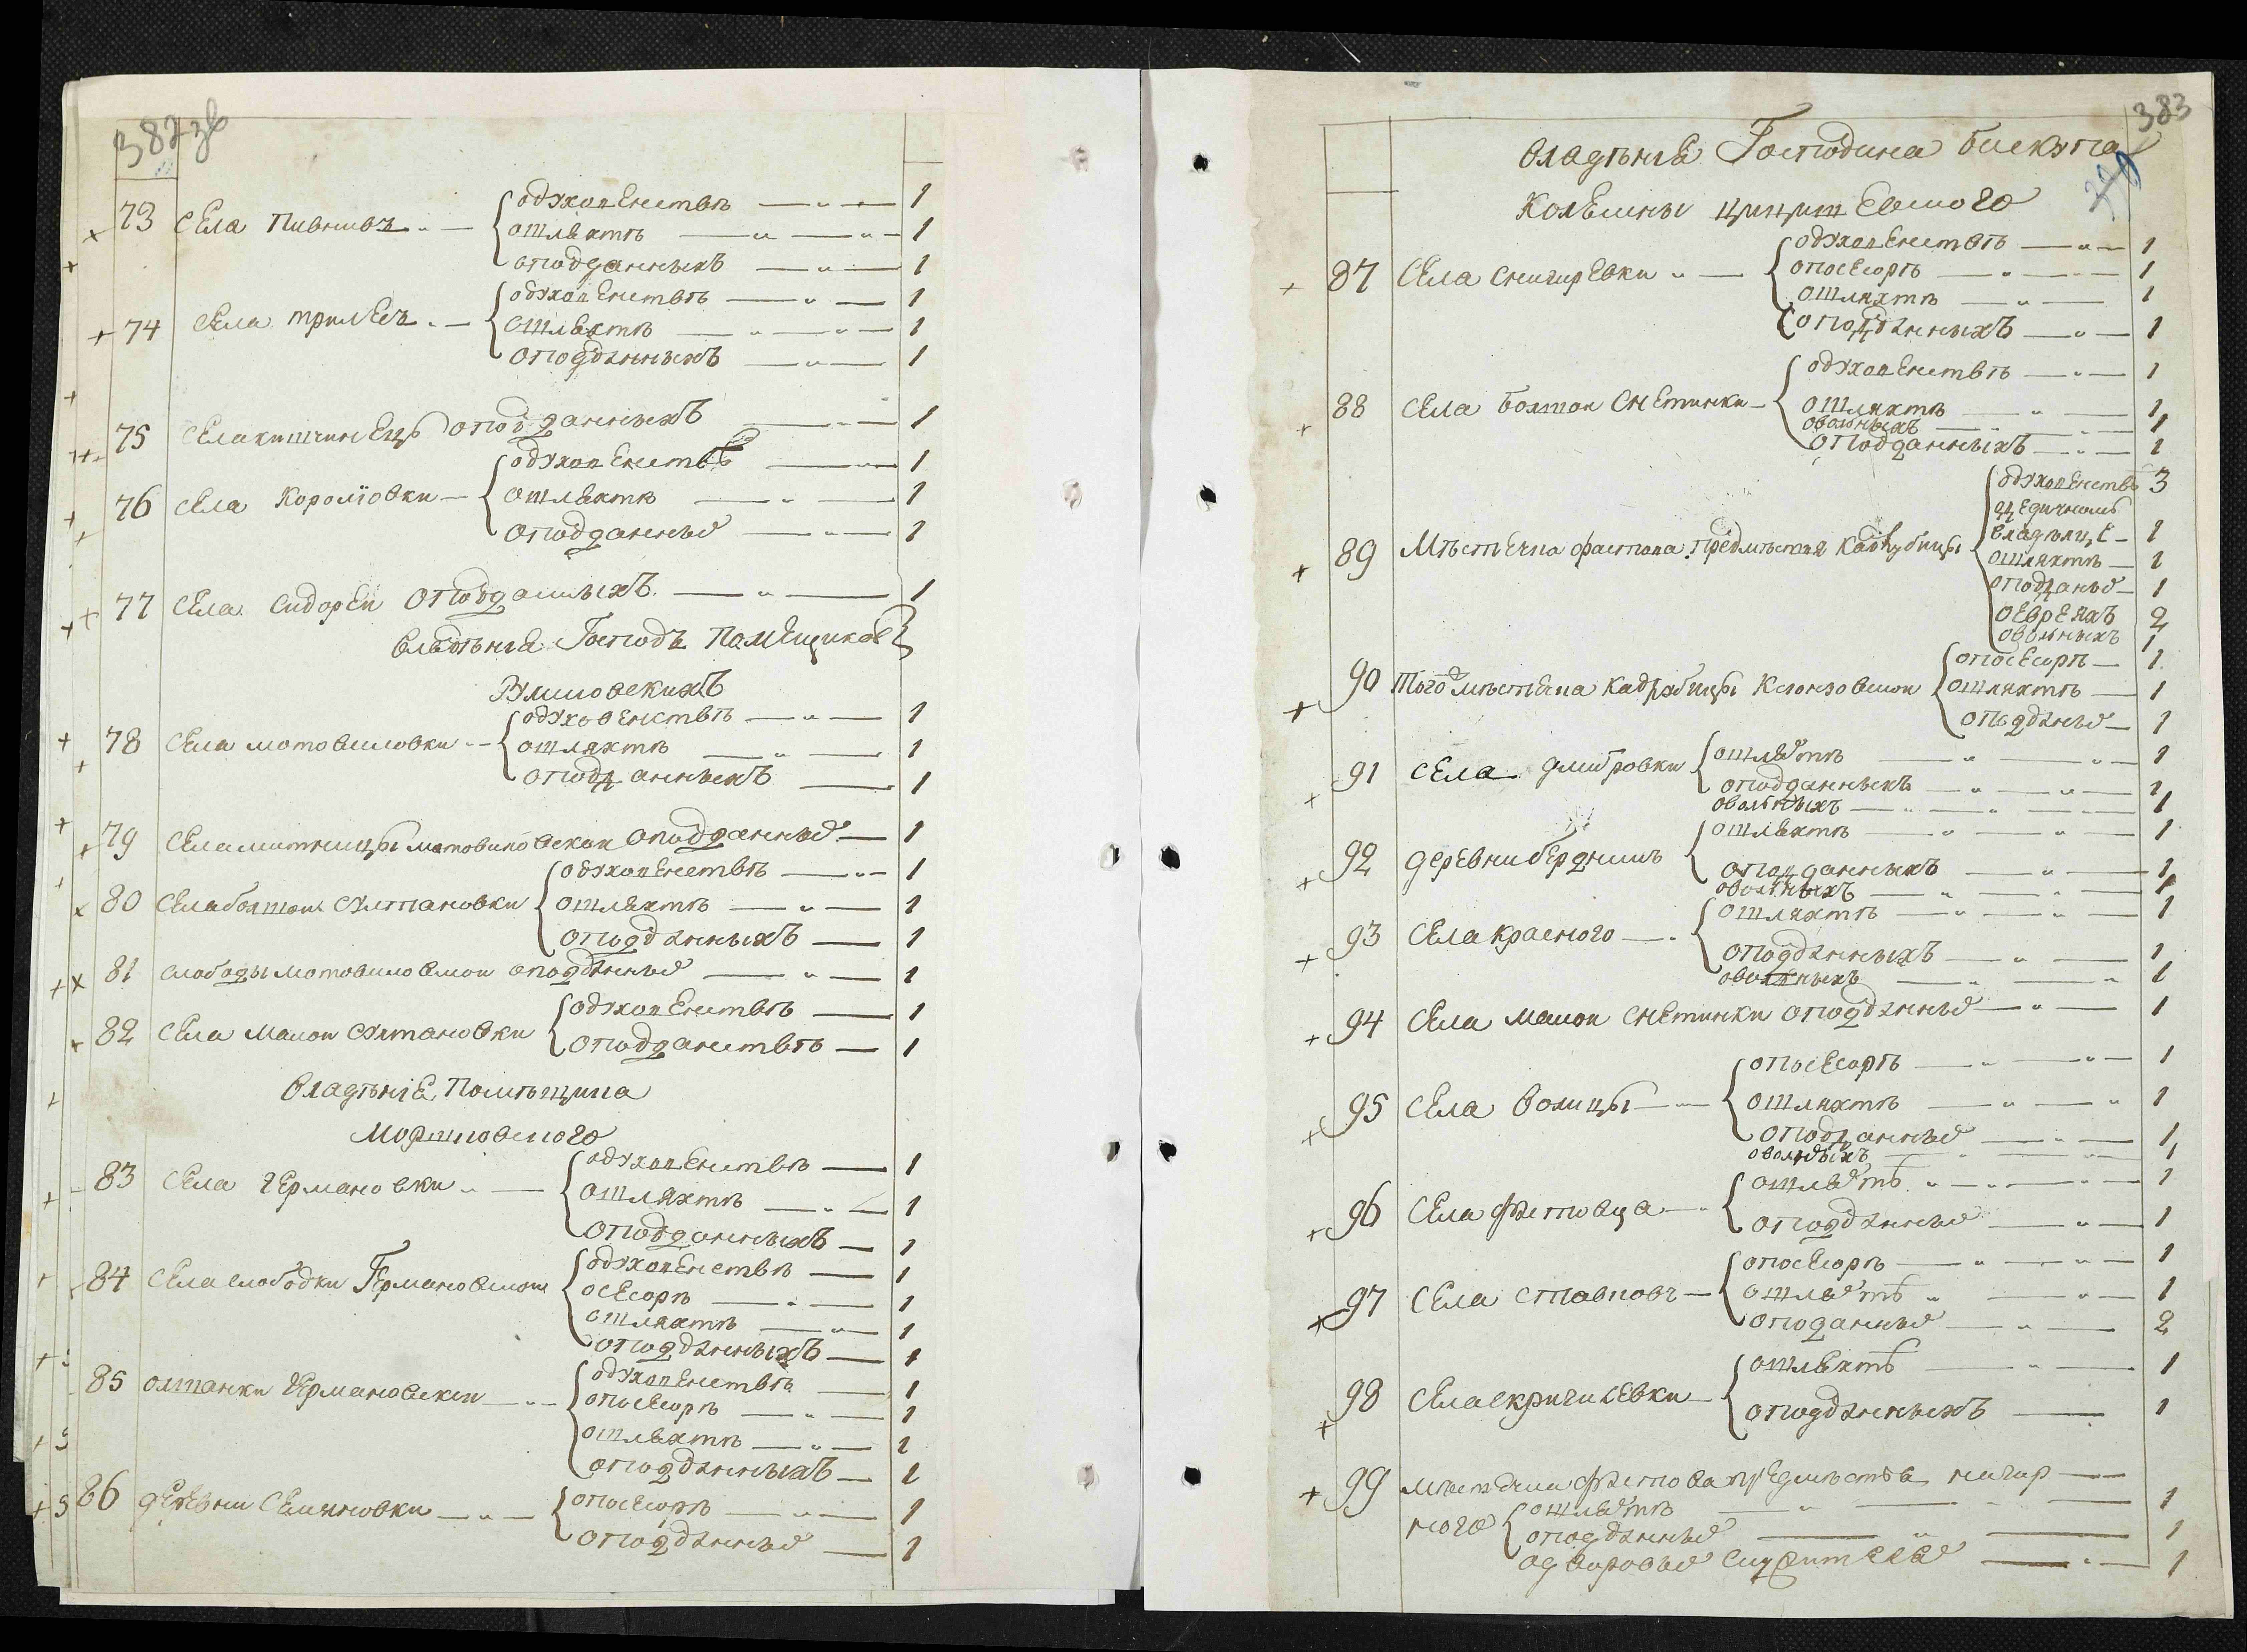 382 зв
73 села Пивнивъ { одуховенствѣ 1
ошляхтѣ 1
оподданныхъ 1
74 села трилесъ { одуховенствѣ 1
ошляхтѣ 1
оподданныхъ 1
75 села кишчинецъ оподданныхъ 1
76 села Королювки { одуховенствѣ 1
ошляхтѣ 1
оподданные 1
77 села Сидореи оподданныхъ 1
владѣния Господъ Помещиков
78 села мотовиловки { одуховенствѣ 1
ошляхтѣ 1
оподданныхъ 1
79 села митницы мотовиловской оподданные 1
80 села болшои Султановки { одуховенствѣ 1
ошляхтѣ 1
оподданныхъ 1
81 слободы мотовиловской оподданные 1
82 села малои Султановки { одуховенствѣ 1
оподданствѣ 1
владѣние Помѣщика
83 села Германовки { одуховенствѣ 1
ошляхтѣ 1
оподданныхъ 1
84 села слободки Германовской { одуховенствѣ 1
осесорѣ 1
ошляхтѣ 1
оподданныхъ 1
85 олшанки Германовской { одуховенствѣ 1
опосесорѣ 1
ошляхтѣ 1
оподданныхъ 1
86 деревни Семяновки { опосесорѣ 1
оподданные 1
383
владѣния Господина бискупа
87 села снигиревки { одуховенствѣ 1
опосесорѣ 1
ошляхтѣ 1
оподданныхъ 1
88 села болшои снетинки { одуховенствѣ 1
ошляхтѣ 1
овольныхъ 1
оподданныхъ 1
89 Мѣстечка фастова предмѣстия Кадлубицы { одуховенствѣ 3
владѣлце 1
ошляхтѣ 1
оподданые 1
оевреяхъ 2
овольныхъ 1
90 того мѣстечка Кадлубицы { опосесорѣ 1
ошляхтѣ 1
оподданые 1
91 села дмитровки { ошляхтѣ 1
оподданныхъ 1
овольныхъ 1
92 деревни бердникъ { ошляхтѣ 1
оподданныхъ 1
овольныхъ 1
93 села красного { ошляхтѣ 1
оподданныхъ 1
овольныхъ 1
94 села малои снетинки оподданные 1
95 села волицы { опосесорѣ 1
ошляхтѣ 1
оподданные 1
овольныхъ 1
96 села фастовца { ошляхтѣ 1
оподданные 1
97 села ставковъ { опосесорѣ 1
ошляхтѣ 1
оподанные 2
98 села скригилевки { ошляхтѣ 1
оподданныхъ 1
99 мѣстечка фастова предмѣстья
ного { ошляхтѣ 1
оподданные 1
1